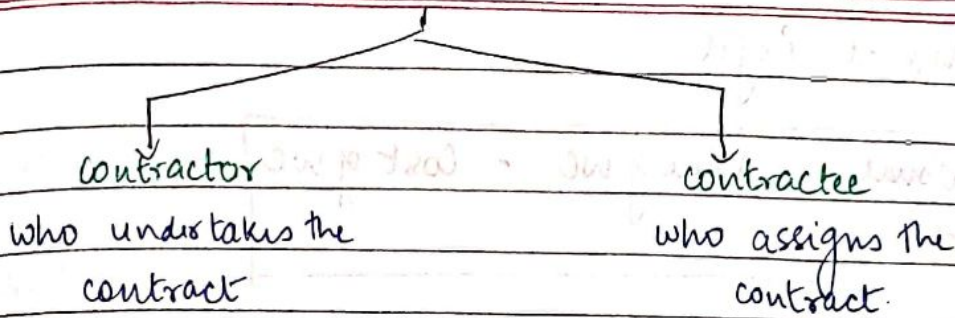 contractor
who undertakes the
contract
contractee
who assigns the
contract.